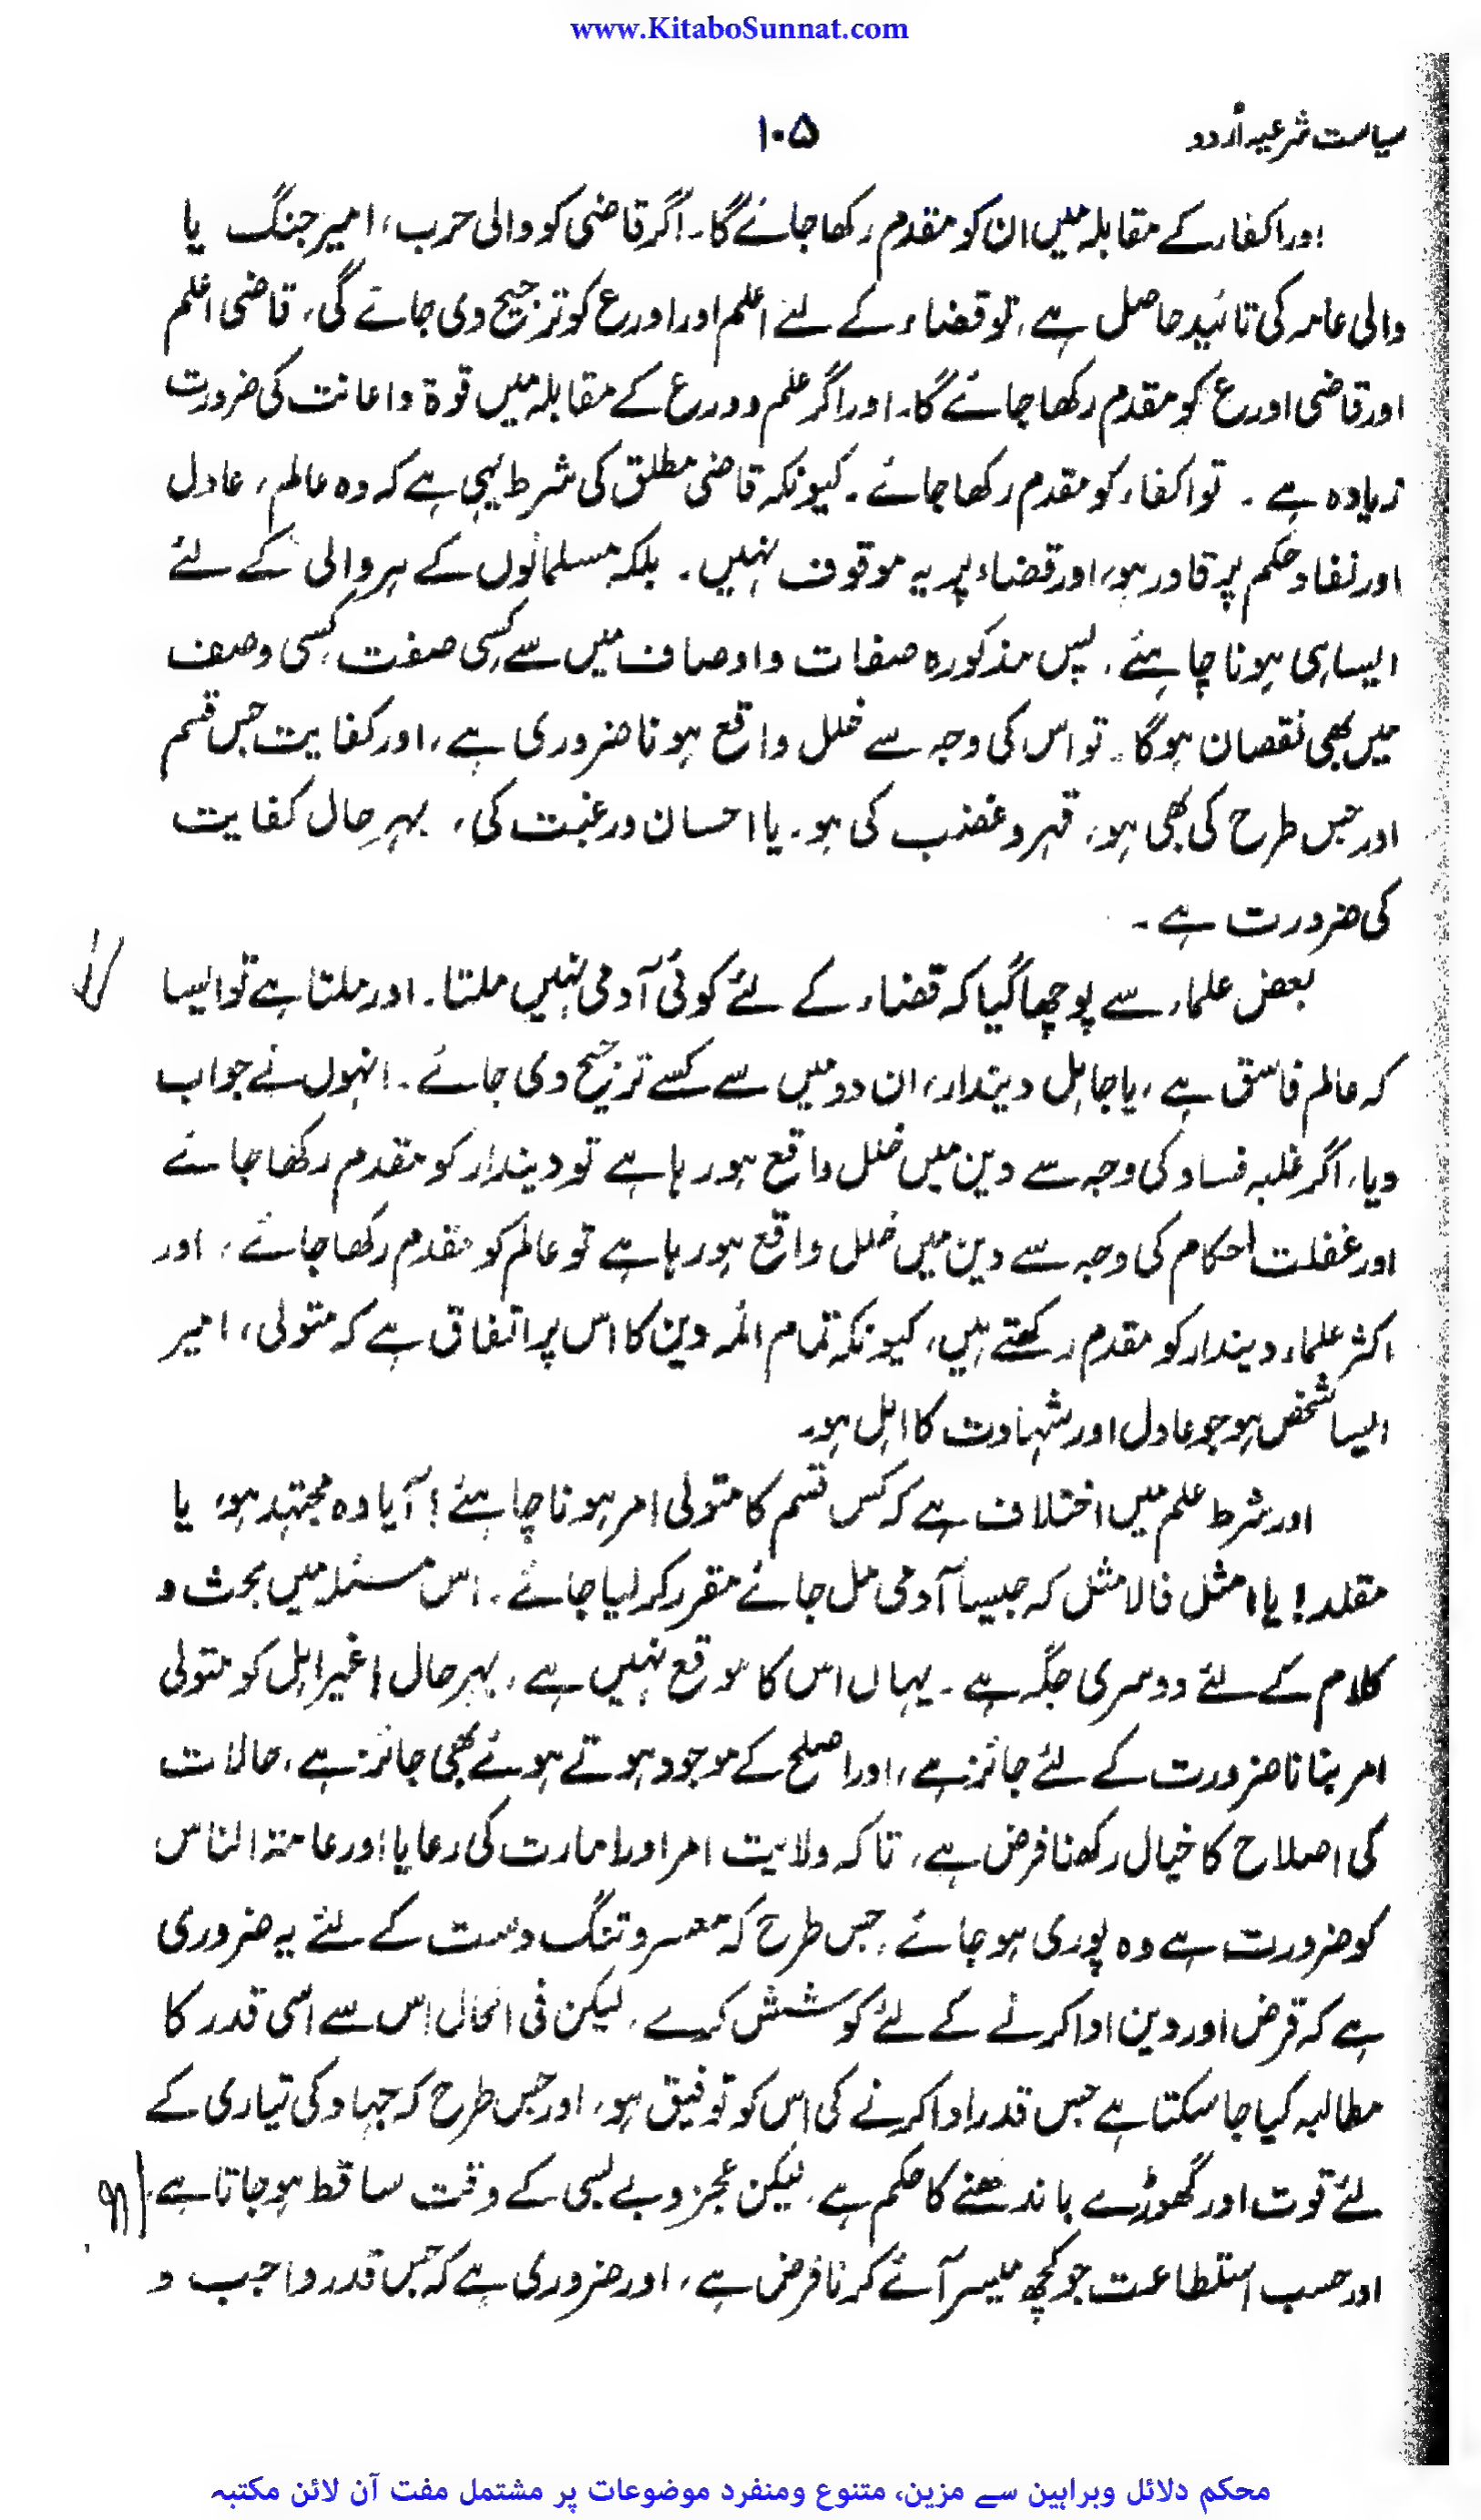 www.KitaboSunnat.com
سیاست شرعیہ اُردو
۱۰۵
اور اکفاء کے مقابلہ میں ان کو مقدم رکھا جائے گا۔ اگر قاضی کو والی حرب، امیر جنگ یا
والی عامہ کی تائید حاصل ہے، تو قضاء کے لئے اعلم اور اورع کو ترجیح دی جائے گی، قاضی اعلم
اور قاضی اورع کو مقدم رکھا جائے گا۔ اور اگر علم و ورع کے مقابلہ میں قوۃ و اعانت کی ضرورت
زیادہ ہے۔ تو اکفاء کو مقدم رکھا جائے۔ کیونکہ قاضی مطلق کی شرط یہی ہے کہ وہ عالم، عادل
اور نفاذ حکم پر قادر ہو، اور قضاء پر یہ موقوف نہیں۔ بلکہ مسلمانوں کے ہر والی کے لئے
ایسا ہی ہونا چاہئے، پس مذکورہ صفات و اوصاف میں سے کسی صفت، کسی وصف
میں بھی نقصان ہوگا۔ تو اس کی وجہ سے خلل واقع ہونا ضروری ہے، اور کفایت جس قسم
اور جس طرح کی بھی ہو، قہر و غضب کی ہو۔ یا احسان و رغبت کی، بہرحال کفایت
کی ضرورت ہے۔
بعض علماء سے پوچھا گیا کہ قضاء کے لئے کوئی آدمی نہیں ملتا۔ اور ملتا ہے تو ایسا
کہ عالم فاسق ہے، یا جاہل دیندار، ان دو میں سے کسے ترجیح دی جائے۔ انہوں نے جواب
دیا، اگر غلبہ فساد کی وجہ سے دین میں خلل واقع ہو رہا ہے تو دیندار کو مقدم رکھا جائے
اور غفلت احکام کی وجہ سے دین میں خلل واقع ہو رہا ہے تو عالم کو مقدم رکھا جائے، اور
اکثر علماء دیندار کو مقدم رکھتے ہیں، کیونکہ تمام ائمہ دین کا اس پر اتفاق ہے کہ متولی، امیر
ایسا شخص ہو جو عادل اور شہادت کا اہل ہو۔
اور شرط علم میں اختلاف ہے کہ کس قسم کا متولی امر ہونا چاہئے! آیا وہ مجتہد ہو، یا
مقلد! یا امثل فالامثل کہ جیسا آدمی مل جائے مقرر کر لیا جائے۔ اس مسئلہ میں بحث و
کلام کے لئے دوسری جگہ ہے۔ یہاں اس کا موقع نہیں ہے، بہرحال غیر اہل کو متولی
امر بنانا ضرورت کے لئے جائز ہے، اور اصلح کے موجود ہوتے ہوئے بھی جائز ہے، حالات
کی اصلاح کا خیال رکھنا فرض ہے، تاکہ ولایت امر اور امارت کی رعایا اور عامۃ الناس
کو ضرورت ہے وہ پوری ہو جائے، جس طرح کہ معسر و تنگ دست کے لئے یہ ضروری
ہے کہ قرض اور دین ادا کرنے کے لئے کوشش کرے، لیکن فی الحال اس سے اسی قدر کا
مطالبہ کیا جا سکتا ہے جس قدر ادا کرنے کی اس کو توفیق ہو، اور جس طرح کہ جہاد کی تیاری کے
لئے قوت اور گھوڑے باندھنے کا حکم ہے، لیکن عجز و بے بسی کے وقت ساقط ہو جاتا ہے،
اور حسب استطاعت جو کچھ میسر آئے کرنا فرض ہے، اور ضروری ہے کہ جس قدر واجب و
محکم دلائل وبراہین سے مزین، متنوع ومنفرد موضوعات پر مشتمل مفت آن لائن مکتبہ